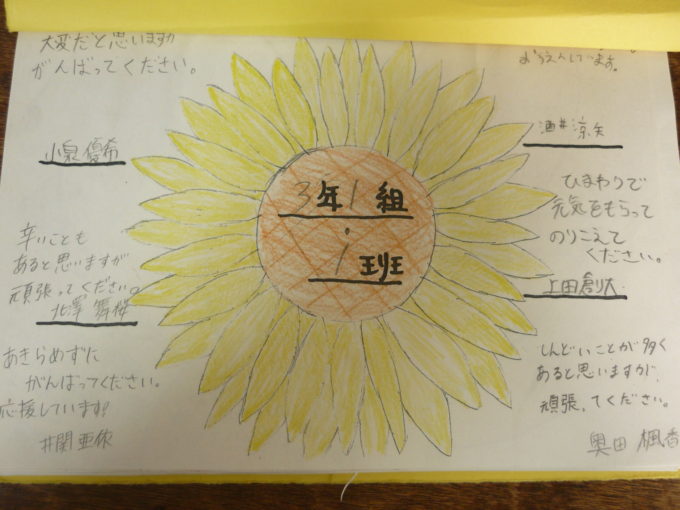 大変だと思いますが
がんばってください。
小泉 優希
辛いことも
あると思いますが
頑張ってください。
北澤 舞桜
あきらめずに
がんばってください。
応援しています!
井関 亜依
3年1組
1班
おうえんしています。
酒井 涼矢
ひまわりで
元気をもらって
のりこえて
ください。
上田 創大
しんどいことが多く
あると思いますが、
頑張ってください。
奥田 楓香